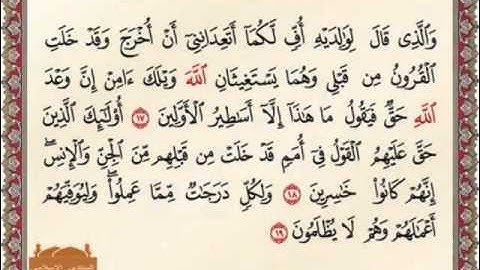 وَٱلَّذِى قَالَ لِوَٰلِدَيْهِ أُفٍّ لَّكُمَآ أَتَعِدَانِنِىٓ أَنْ أُخْرَجَ وَقَدْ خَلَتِ
ٱلْقُرُونُ مِن قَبْلِى وَهُمَا يَسْتَغِيثَانِ ٱللَّهَ وَيْلَكَ ءَامِنْ إِنَّ وَعْدَ
ٱللَّهِ حَقٌّ فَيَقُولُ مَا هَٰذَآ إِلَّآ أَسَٰطِيرُ ٱلْأَوَّلِينَ ١٧ أُو۟لَٰٓئِكَ ٱلَّذِينَ
حَقَّ عَلَيْهِمُ ٱلْقَوْلُ فِىٓ أُمَمٍ قَدْ خَلَتْ مِن قَبْلِهِم مِّنَ ٱلْجِنِّ وَٱلْإِنسِ ۖ
إِنَّهُمْ كَانُوا۟ خَٰسِرِينَ ١٨ وَلِكُلٍّ دَرَجَٰتٌ مِّمَّا عَمِلُوا۟ ۖ وَلِيُوَفِّيَهُمْ
أَعْمَٰلَهُمْ وَهُمْ لَا يُظْلَمُونَ ١٩